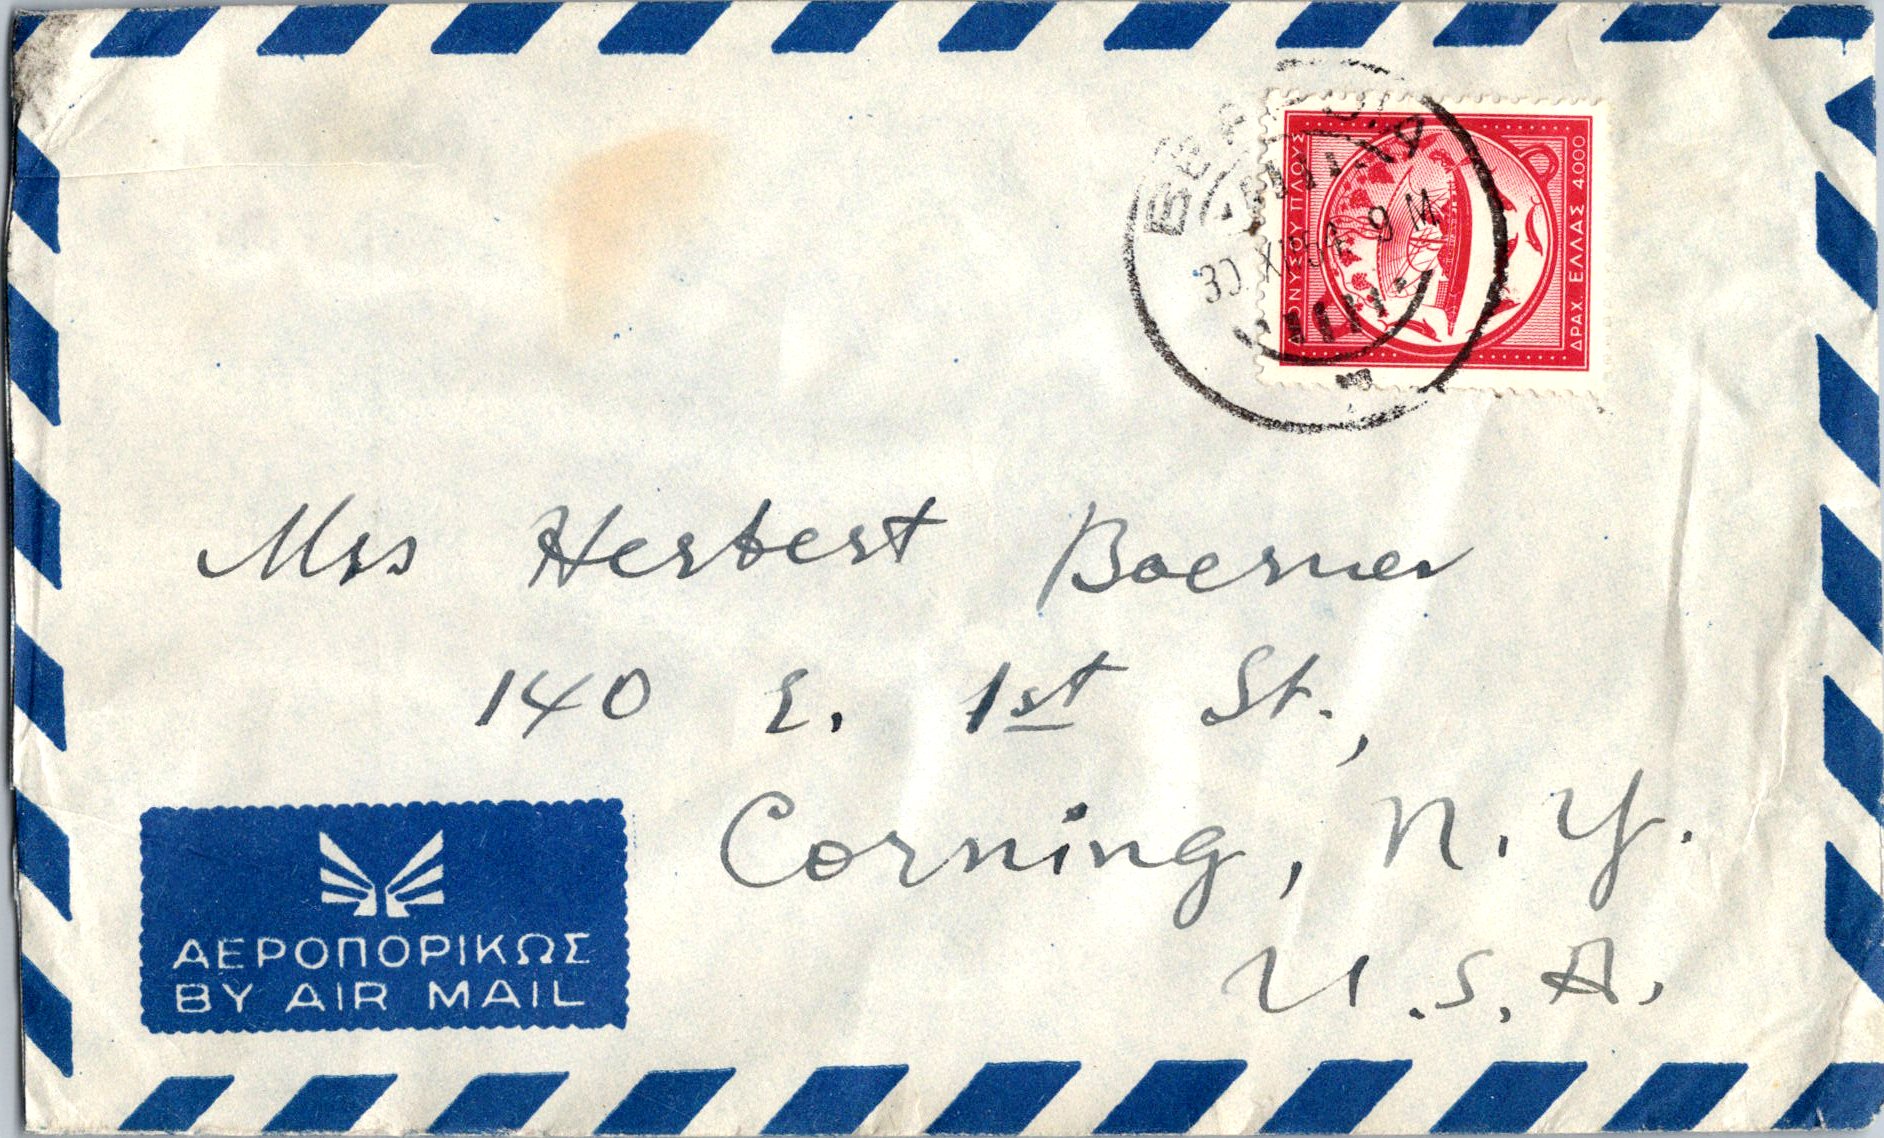 9 M
ΠΛΟΥΣ
ΔΡΑΧ ΕΛΛΑΣ 4.000
Mrs Herbert Boerner
140 E. 1st St.,
Corning, N.Y.
U.S.A.
ΑΕΡΟΠΟΡΙΚΩΣ
BY AIR MAIL